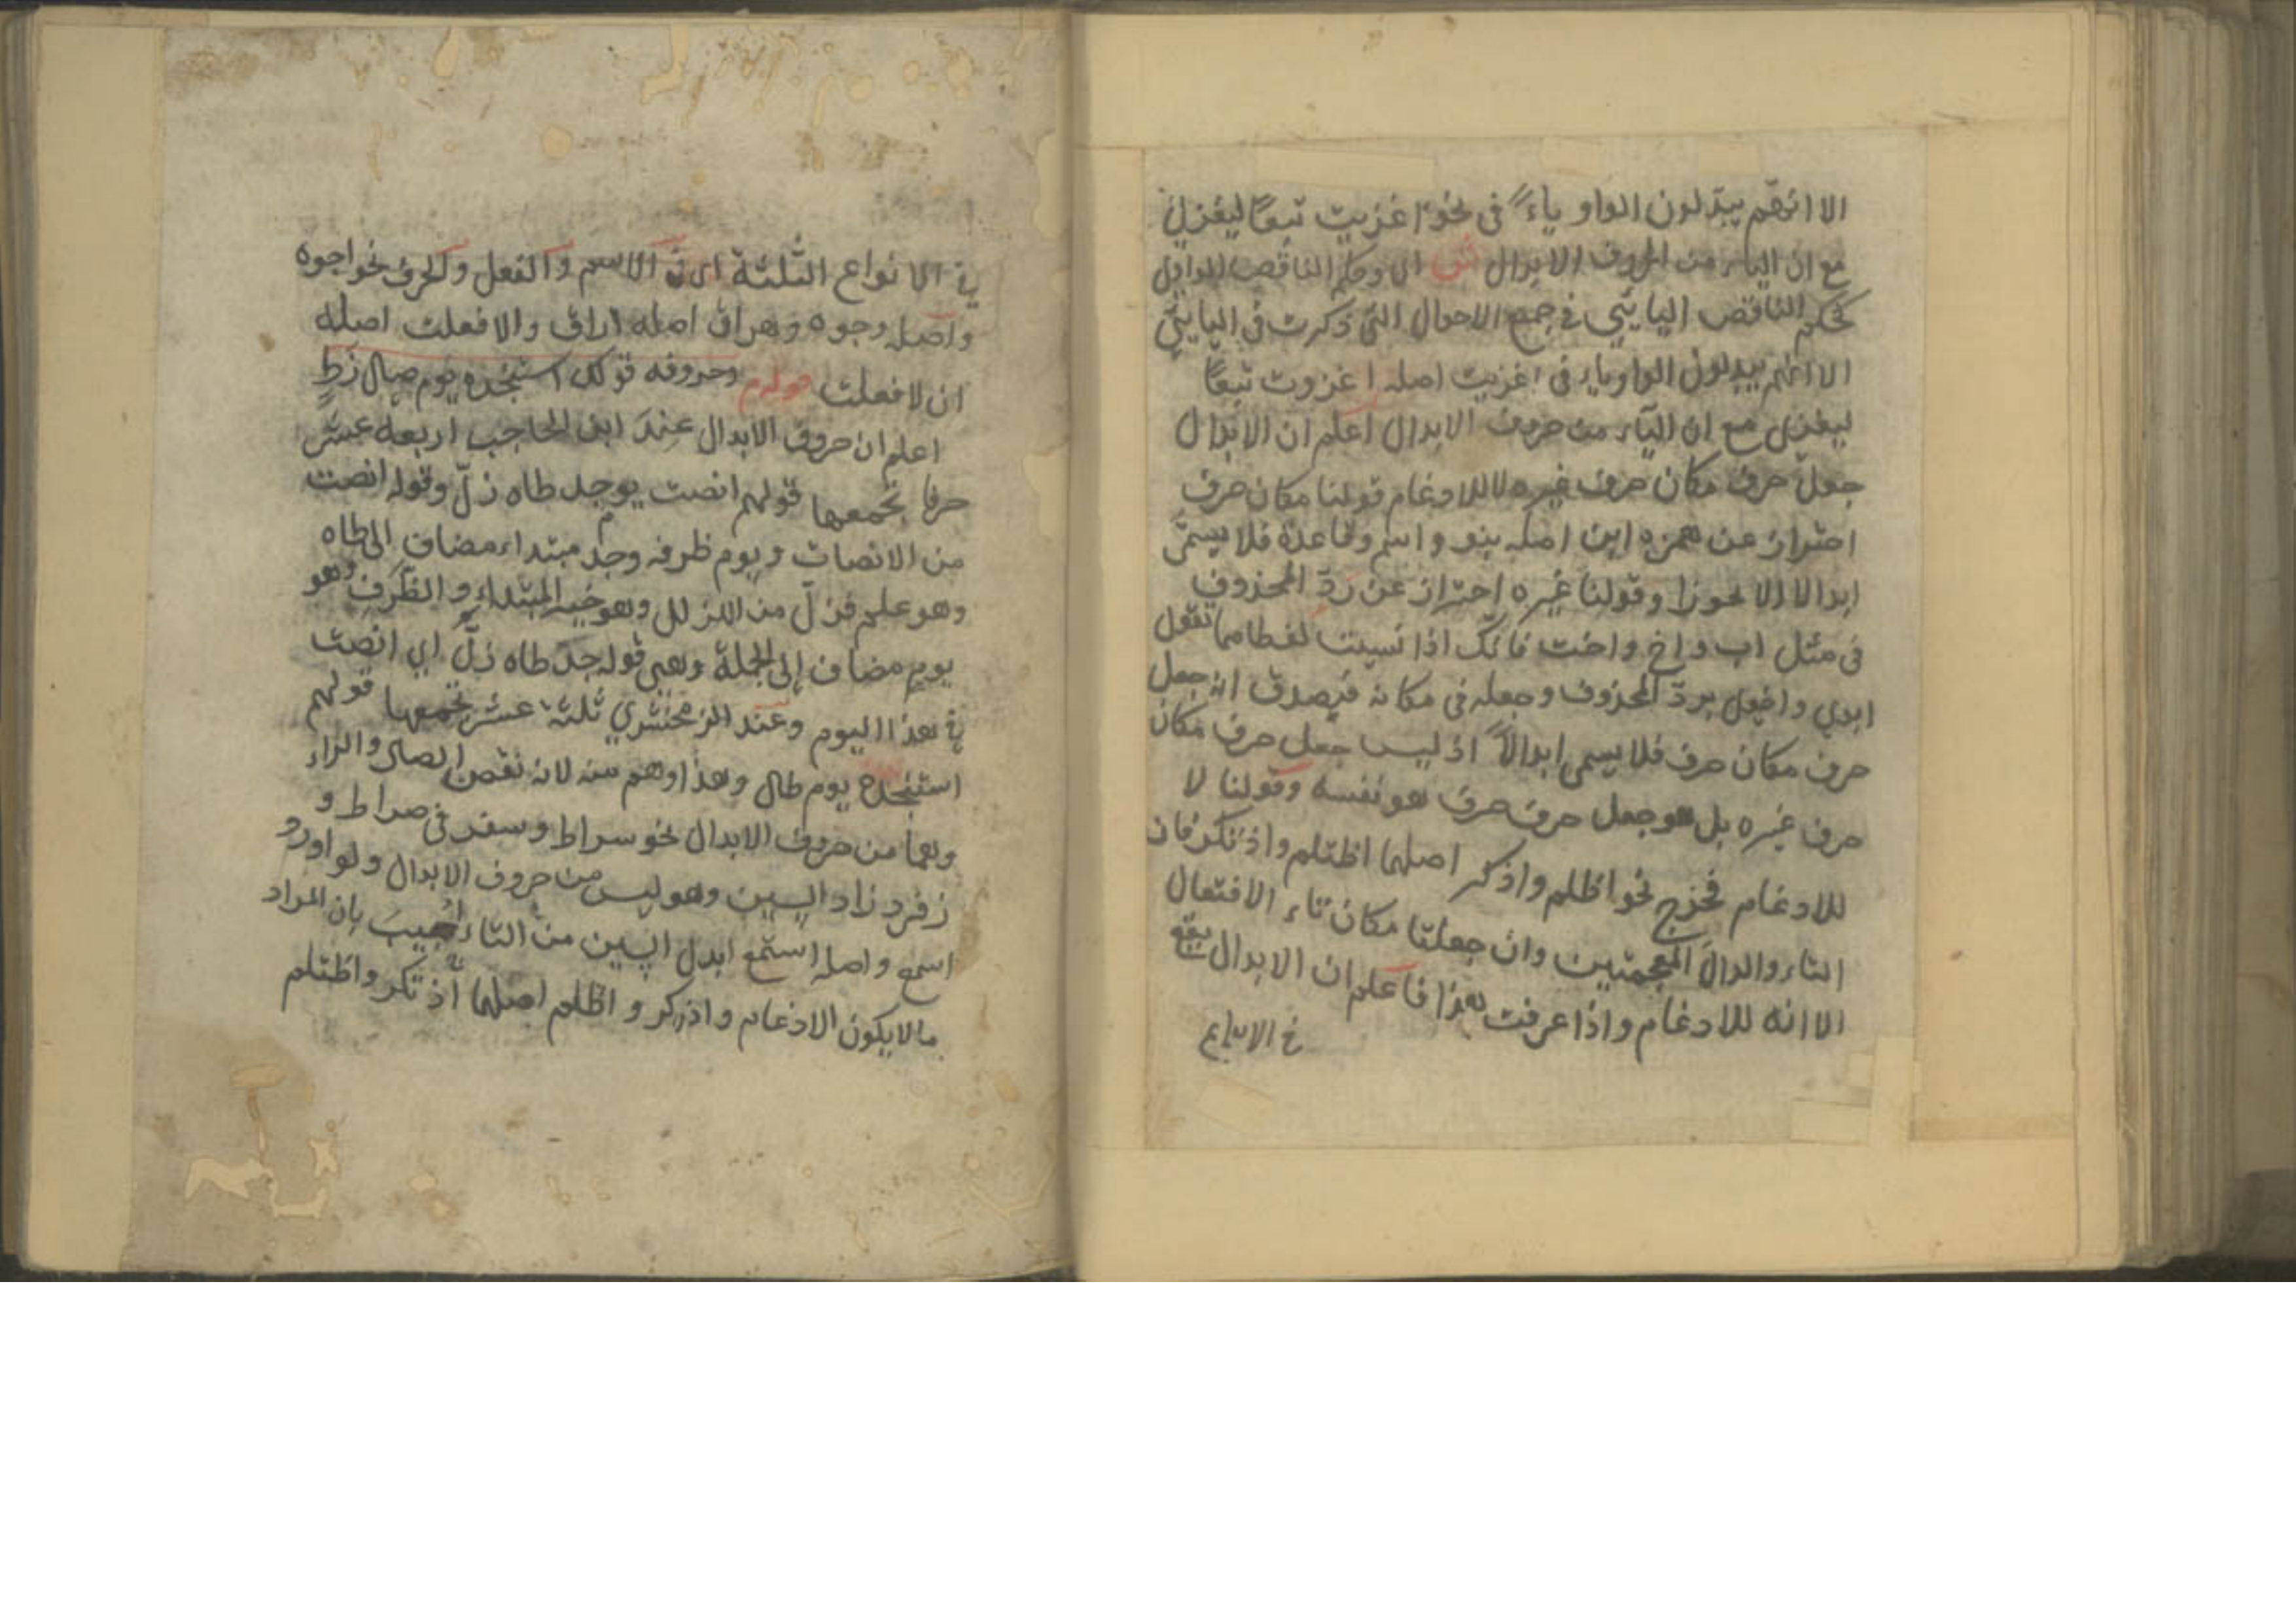 الا انهم يبدلون الواو ياءً فى نحو اغزيت تبعًا ليغزى
مع ان الياء من الحروف الابدال ش اى وحكم الناقص الواوى
كحكم الناقص اليائى فى جميع الاحوال التى ذكرت فى اليائى
الا انهم يبدلون الواو ياء فى اغزيت اصله اغزوت تبعًا
ليغزى مع ان الياء من حروف الابدال اعلم ان الابدال
جعل حرف مكان حرف غيره لا للادغام قولنا مكان حرف
احتراز عن همزه ابن اصله بنو واسم وقاعدة فلا يسمى
ابدالا الا تجوزا وقولنا غيره احتراز عن ردّ المحذوف
فى مثل اب واخ واخت فانك اذا نسبت تقول
ابوى واخوى بردّ المحذوف وجعله فى مكانه فيصدق انه جعل
حرف مكان حرف فلا يسمى ابدالاً اذ ليس جعل حرف مكان
حرف غيره بل هو جعل حرف حرف هو نفسه وقولنا لا
للادغام فخرج نحو اظلم واذكر اصلهما اظتلم واذتكر فان
التاء والدال المعجمتين وان جعلتا مكان تاء الافتعال
الا انه للادغام واذا عرفت هذا فاعلم ان الابدال يقع
فى الانواع
فى الانواع الثلثة اى فى الاسم والفعل والحرف نحو اجوه
واصله وجوه وهراق اصله اراق والا فعلت اصله
ان لا فعلت قوله وحروفه قولك استنجده يوم صال زط
اعلم ان حروف الابدال عند ابن الحاجب اربعه عشر
حرفا يجمعها قولهم انصت يوم جد طاه زلّ وقوله انصت
من الانصات ويوم ظرفه وجد مبتداء مضاف الى طاه
وهو علم فزلّ من الزلل وهو خبر المبتداء والظرف وهو
يوم مضاف الى الجملة وهى قوله جد طاه زلّ اى انصت
فى هذا اليوم وعند الزمخشري ثلثة عشر يجمعها قولهم
استنجده يوم طال وهذا وهم منه لانه نقص الصاد والزاء
وهما من حروف الابدال نحو سراط وسقر فى صراط و
زقر وزاد السين وهو ليس من حروف الابدال ولو اورد
اسمع واصله استمع ابدل السين من التاء اجيب بان المراد
ما لا يكون الادغام واذكر واظلم اصلهما اذتكر واظتلم